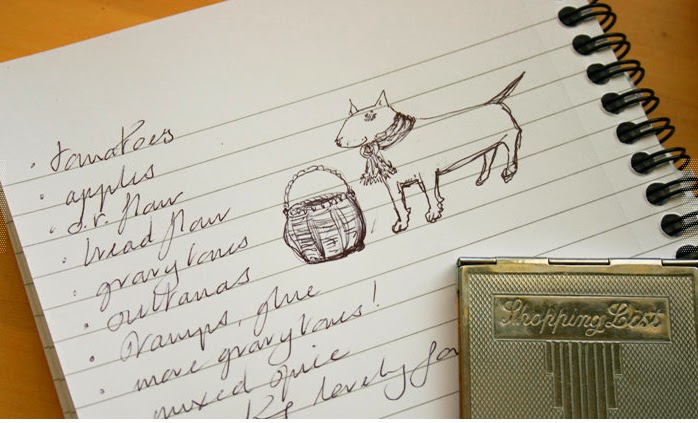 · tomatoes
· apples
· s.r. flour
· bread flour
· gravybones
· sultanas
· stamps, glue
· more gravybones!
· mixed spice
lovely
Shopping List